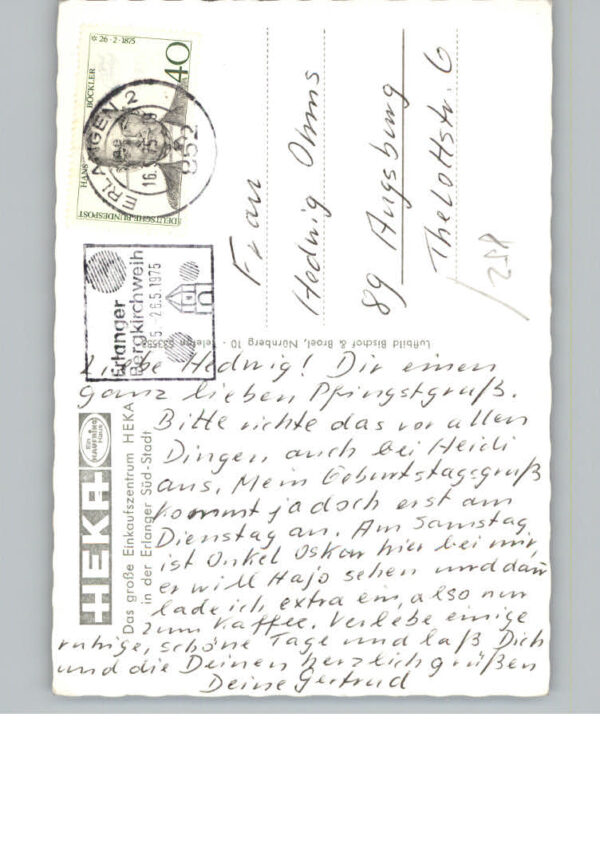 * 26·2·1875
HANS BÖCKLER
40
DEUTSCHE BUNDESPOST
ERLANGEN 2
16.
75
852
Erlanger
Bergkirchweih
5 - 26.5.1975
Frau
Hedwig Ohms
89 Augsburg
Thelottstr. 6
Luftbild Bischof & Broel, Nürnberg 10 - Telefon
HEKA
Ein
KAUFRING
HAUS
Das große Einkaufszentrum HEKA
in der Erlanger Süd-Stadt
Liebe Hedwig! Dir einen
ganz lieben Pfingstgruß.
Bitte richte das vor allen
Dingen auch bei Heidi
aus. Mein Geburtstagsgruß
kommt jadoch erst am
Dienstag an. Am Samstag
ist Onkel Oskar hier bei mir,
er will Hajo sehen und dann
lade ich extra ein, also nur
zum Kaffee. Verlebe einige
ruhige, schöne Tage und laß Dich
und die Deinen herzlich grüßen
Deine Gertrud